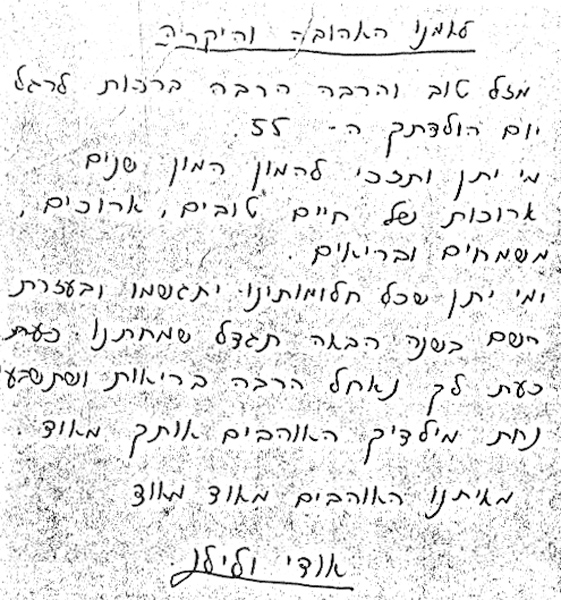 לאמנו האהובה והיקריה
מזל טוב והרבה הרבה ברכות לרגל
יום הולדתך ה- 55.
מי יתן ותזכי להמון המון שנים
ארוכות של חיים טובים, ארוכים,
משמחים ובריאים.
ומי יתן שכל חלומותינו יתגשמו ובעזרת
השם בשנה הבאה תגדל שמחתנו. כעת
כעת לך נאחל הרבה בריאות ושתשבעי
נחת מילדיך האוהבים אותך מאוד.
מאיתנו האוהבים מאוד מאוד
אודי ולילך